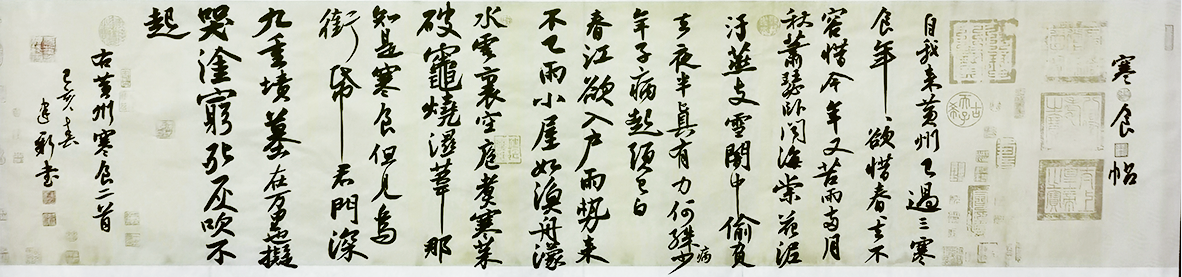 寒食帖
自我来黄州已過三寒
食年〻欲惜春〻去不
容惜今年又苦雨兩月
秋蕭瑟卧聞海棠花泥
汙燕支雪闇中偷負
去夜半真有力何殊少病
年子病起頭已白
春江欲入户雨勢来
不已雨小屋如漁舟濛
水雲裏空庖煮寒菜
破竈燒濕葦那
知是寒食但見烏
銜帋君門深
九重墳墓在万里也擬
哭塗窮死灰吹不
起
右黄州寒食二首
己亥春
建新書